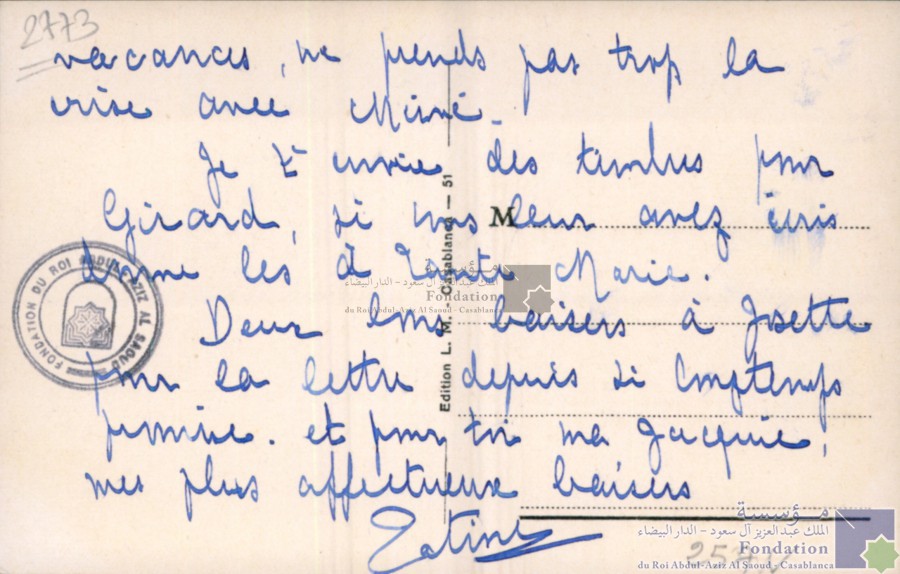 2773
vacances, ne prends pas trop la
crise avec Mimi.
Je t'envoie des timbres pour
Girard, si vous leur avez écris
donne les à Tante Marie.
Deux bons baisers à Josette
pour la lettre depuis si longtemps
promise. et pour toi ma Jacquie,
mes plus affectueux baisers
M
Edition L. M. - Casablanca — 51
FONDATION DU ROI ABDUL-AZIZ AL SAOUD
مؤسسة
الملك عبد العزيز آل سعود - الدار البيضاء
Fondation
du Roi Abdul-Aziz Al Saoud - Casablanca
مؤسسة
الملك عبد العزيز آل سعود - الدار البيضاء
Fondation
du Roi Abdul-Aziz Al Saoud - Casablanca